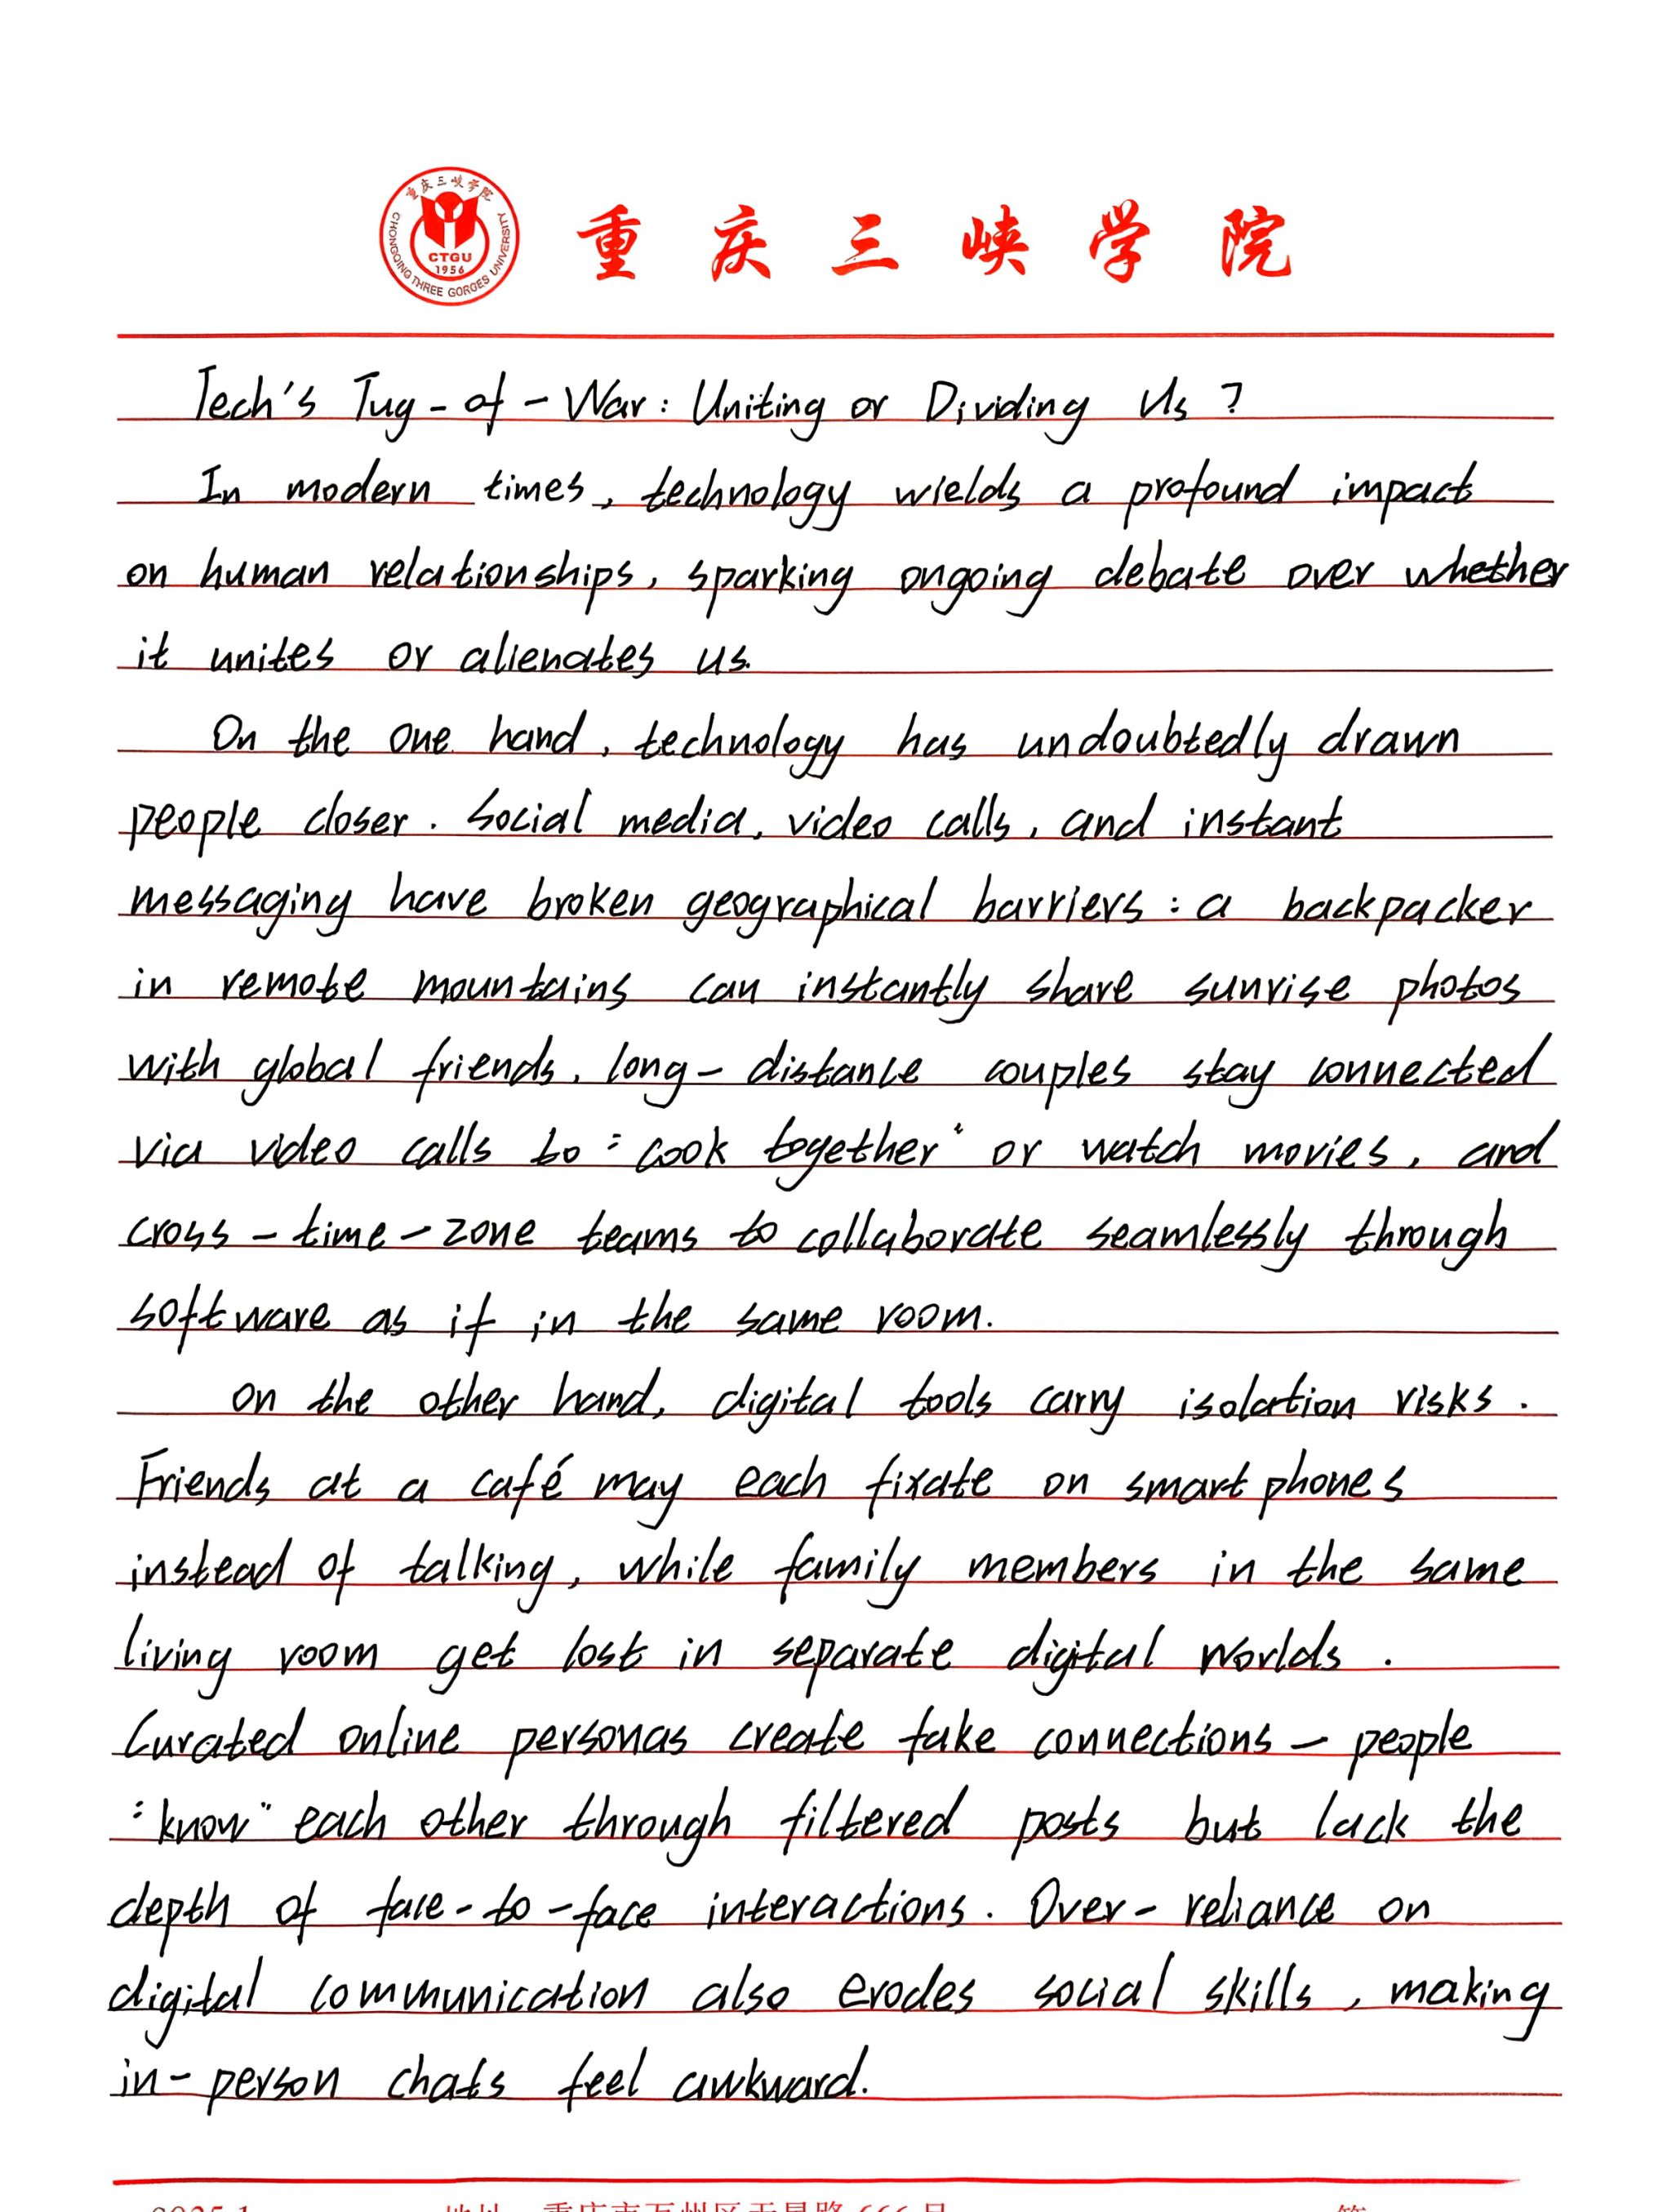 重庆三峡学院
CHONGQING THREE GORGES UNIVERSITY
CTGU
1956
重庆三峡学院
Tech's Tug-of-War: Uniting or Dividing Us?
In modern times, technology wields a profound impact
on human relationships, sparking ongoing debate over whether
it unites or alienates us.
On the one hand, technology has undoubtedly drawn
people closer. Social media, video calls, and instant
messaging have broken geographical barriers: a backpacker
in remote mountains can instantly share sunrise photos
with global friends, long-distance couples stay connected
via video calls to "cook together" or watch movies, and
cross-time-zone teams to collaborate seamlessly through
software as if in the same room.
On the other hand, digital tools carry isolation risks.
Friends at a café may each fixate on smartphones
instead of talking, while family members in the same
living room get lost in separate digital worlds.
Curated online personas create fake connections — people
"know" each other through filtered posts but lack the
depth of face-to-face interactions. Over-reliance on
digital communication also erodes social skills, making
in-person chats feel awkward.